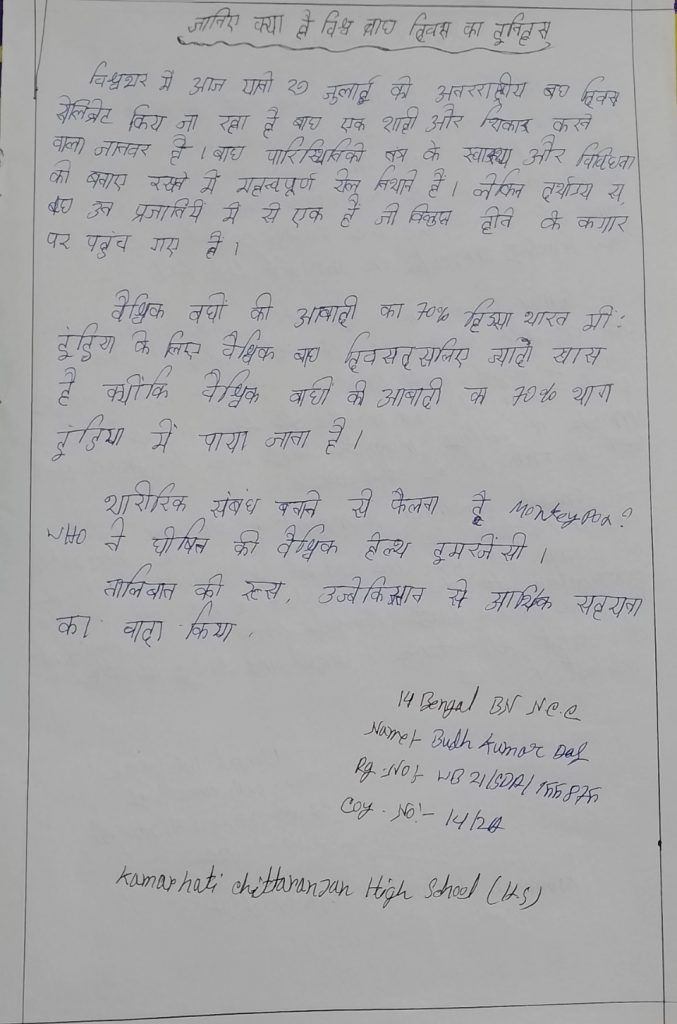 जानिए क्या है विश्व बाघ दिवस का इतिहास
विश्वभर में आज यानी 29 जुलाई को अन्तरराष्ट्रीय बाघ दिवस
सेलिब्रेट किया जा रहा है बाघ एक शाही और शिकार करने
वाला जानवर है । बाघ पारिस्थितिकी तंत्र के स्वास्थ्य और विविधता
को बनाए रखने में महत्वपूर्ण रोल निभाते है । लेकिन दुर्भाग्य स
बाघ उन प्रजातियों में से एक है जो विलुप्त होने के कगार
पर पहुंच गए है ।
वैश्विक बघों की आबादी का 70% हिस्सा भारत में :
इंडिया के लिए वैश्विक बाघ दिवस इसलिए ज्यादा खास
है क्योंकि वैश्विक बाघों की आबादी का 70% भाग
इंडिया में पाया जाता है ।
शारीरिक संबंध बनाने से फैलता है Monkeypox?
WHO ने घोषित की वैश्विक हेल्थ इमरजेंसी ।
तालिबान को रूस, उज्बेकिस्तान से आर्थिक सहायता
का वादा किया .
14 Bengal BN N.C.C
Name:- Budh Kumar Das
Rg. No:- WB 21/SDA/
Coy. No:- 14/2A
Kamarhati Chittaranjan High School (H.S)